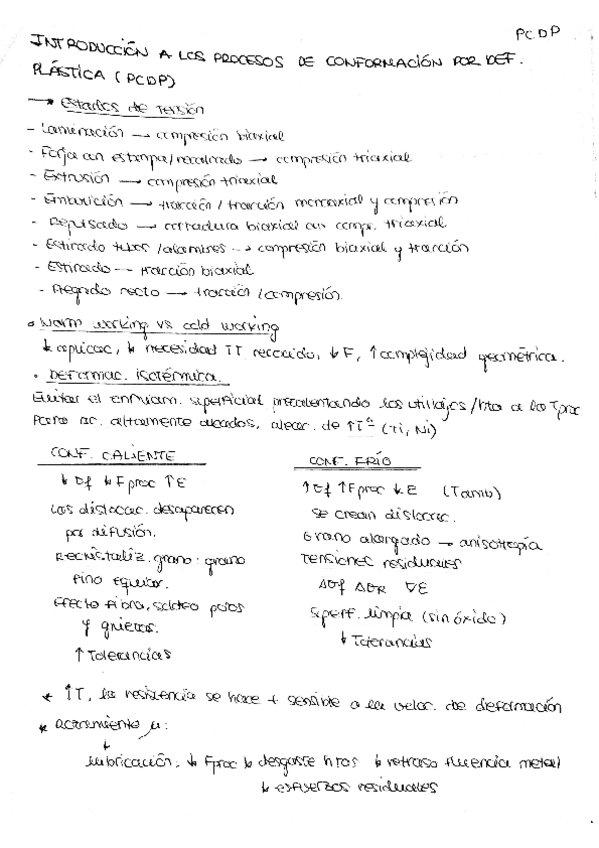 PCDP
INTRODUCCIÓN A LOS PROCESOS DE CONFORMACIÓN POR DEF.
PLÁSTICA (PCDP)
→ Estados de tensión
- Laminación → compresión biaxial
- Forja con estampa/recalcado → compresión triaxial
- Extrusión → compresión triaxial
- Embutición → tracción / tracción monoaxial y compresión
- Repulsado → biaxial con compr. triaxial
- Estirado tubos / alambres → compresión biaxial y tracción
- Estirado → tracción biaxial
- Plegado recto → tracción / compresión.
• Warm working vs cold working
↓ acritud, ↓ necesidad TT recocido, ↓F, ↑ complejidad geométrica.
• DEFORMAC. ISOTÉRMICA.
Evitar el enfriam. superficial precalentando los utillajes/hta a la Tproc
Para ac. altamente aleados, aleac. de ↑Tª (Ti, Ni)
CONF. CALIENTE
↓ σf ↓ Fproc ↑E
Las dislocac. desaparecen
por difusión.
Recristaliz. grano: grano
fino equiax.
Efecto fibra, poros
y grietas.
↑ Tolerancias
CONF. FRÍO
↑ σf ↑ Fproc ↓ E (Tamb)
Se crean dislocac.
Grano alargado → anisotropía
Tensiones residuales
Δσf ΔσR ∇E
Superf. limpia (sin óxido)
↓ Tolerancias
* ↑T, la resistencia se hace + sensible a la veloc. de deformación
* μ:
↓
lubricación, ↓ Fproc ↓ desgaste htas ↓ retraso fluencia metal
↓ esfuerzos residuales